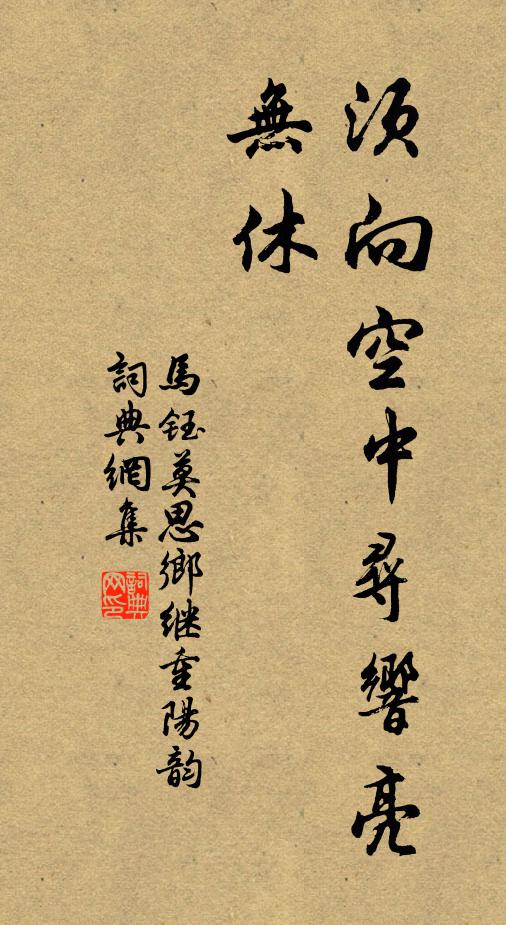 須向空中尋響亮
無休
馬鈺莫思鄉继重陽韵
詞典網集
詞典
网印